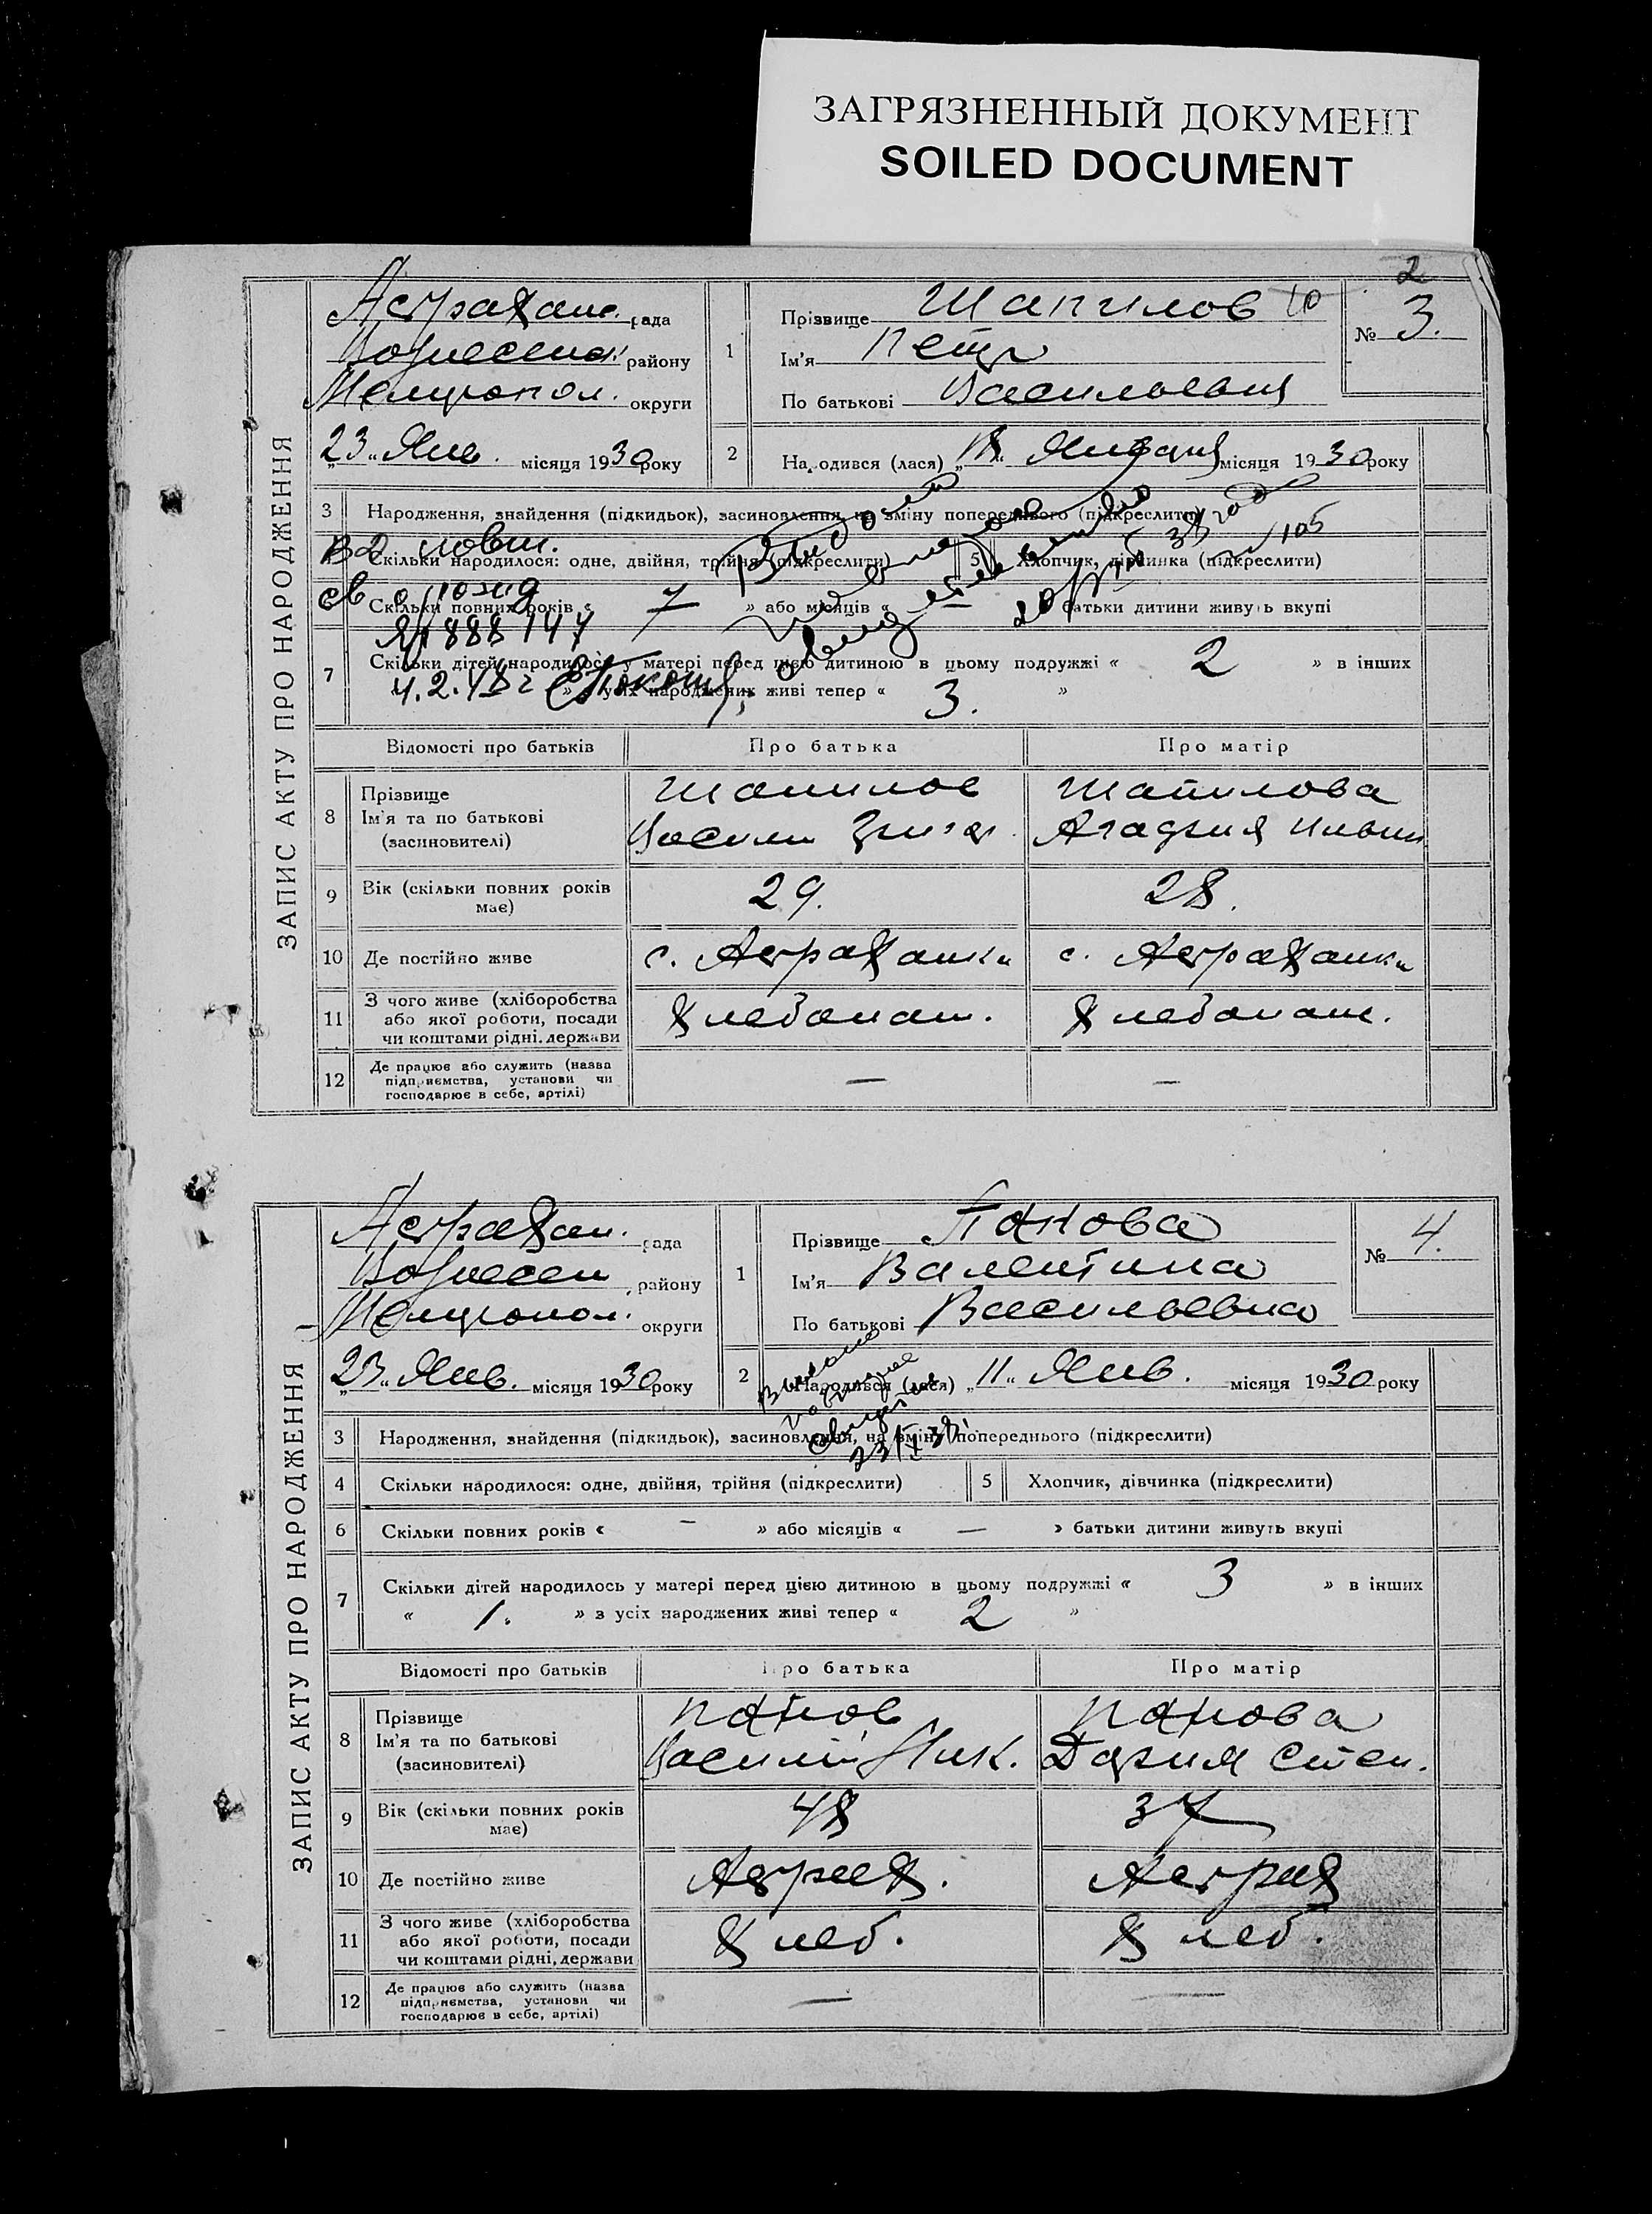 ЗАГРЯЗНЕННЫЙ ДОКУМЕНТ
SOILED DOCUMENT
2
ЗАПИС АКТУ ПРО НАРОДЖЕННЯ
Астрахан. рада
Вознесенск. району
Мелитопол. округи
„23„ Янв. місяця 1930 року
1 Прізвище Шапилов
Ім'я Петр
По батькові Васильевич
№ 3.
2 Народився (лася) „18„ Января місяця 1930 року
3 Народження, знайдення (підкидьок), засиновлення, на зміну попереднього (підкреслити)
Скільки народилося: одне, двійня, трійня (підкреслити) 5 Хлопчик, дівчинка (підкреслити)
Скільки повних років « 7 » або місяців « — батьки дитини живуть вкупі
7 Скільки дітей народилось у матері перед цією дитиною в цьому подружжі « 2 » в інших
» з усіх народжених живі тепер « 3. »
Выдано
повторное
свидетельство
38 год
105
Выд. повт.
св о рожд
888144
4.2.48 г
Відомості про батьків Про батька Про матір
8 Прізвище Шапилов Шапилова
Ім'я та по батькові Васили Григор. Агафия Ильин
(засиновителі)
9 Вік (скільки повних років має) 29. 28.
10 Де постійно живе с. Астраханка с. Астраханка
11 З чого живе (хліборобства або якої роботи, посади чи коштами рідні, держави Хлебопаш. Хлебопаш.
12 Де працює або служить (назва підприємства, установи чи господарює в себе, артілі) — —
ЗАПИС АКТУ ПРО НАРОДЖЕННЯ
Астрахан. рада
Вознесен району
Мелитопол. округи
„23„ Янв. місяця 1930 року
1 Прізвище Панова
Ім'я Валентина
По батькові Васильевна
№ 4.
2 Народився (лася) „11„ Янв. місяця 1930 року
Выдано
повторное
свидет
3 Народження, знайдення (підкидьок), засиновлення, на зміну попереднього (підкреслити)
4 Скільки народилося: одне, двійня, трійня (підкреслити) 5 Хлопчик, дівчинка (підкреслити)
6 Скільки повних років « — » або місяців « — » батьки дитини живуть вкупі
7 Скільки дітей народилось у матері перед цією дитиною в цьому подружжі « 3 » в інших
« 1. » з усіх народжених живі тепер « 2 »
Відомості про батьків Про батька Про матір
8 Прізвище Панов Панова
Ім'я та по батькові Василий Ник. Дария Степ.
(засиновителі)
9 Вік (скільки повних років має) 48 37
10 Де постійно живе Астрах. Астрах
11 З чого живе (хліборобства або якої роботи, посади чи коштами рідні, держави Хлеб. Хлеб.
12 Де працює або служить (назва підприємства, установи чи господарює в себе, артілі) — —